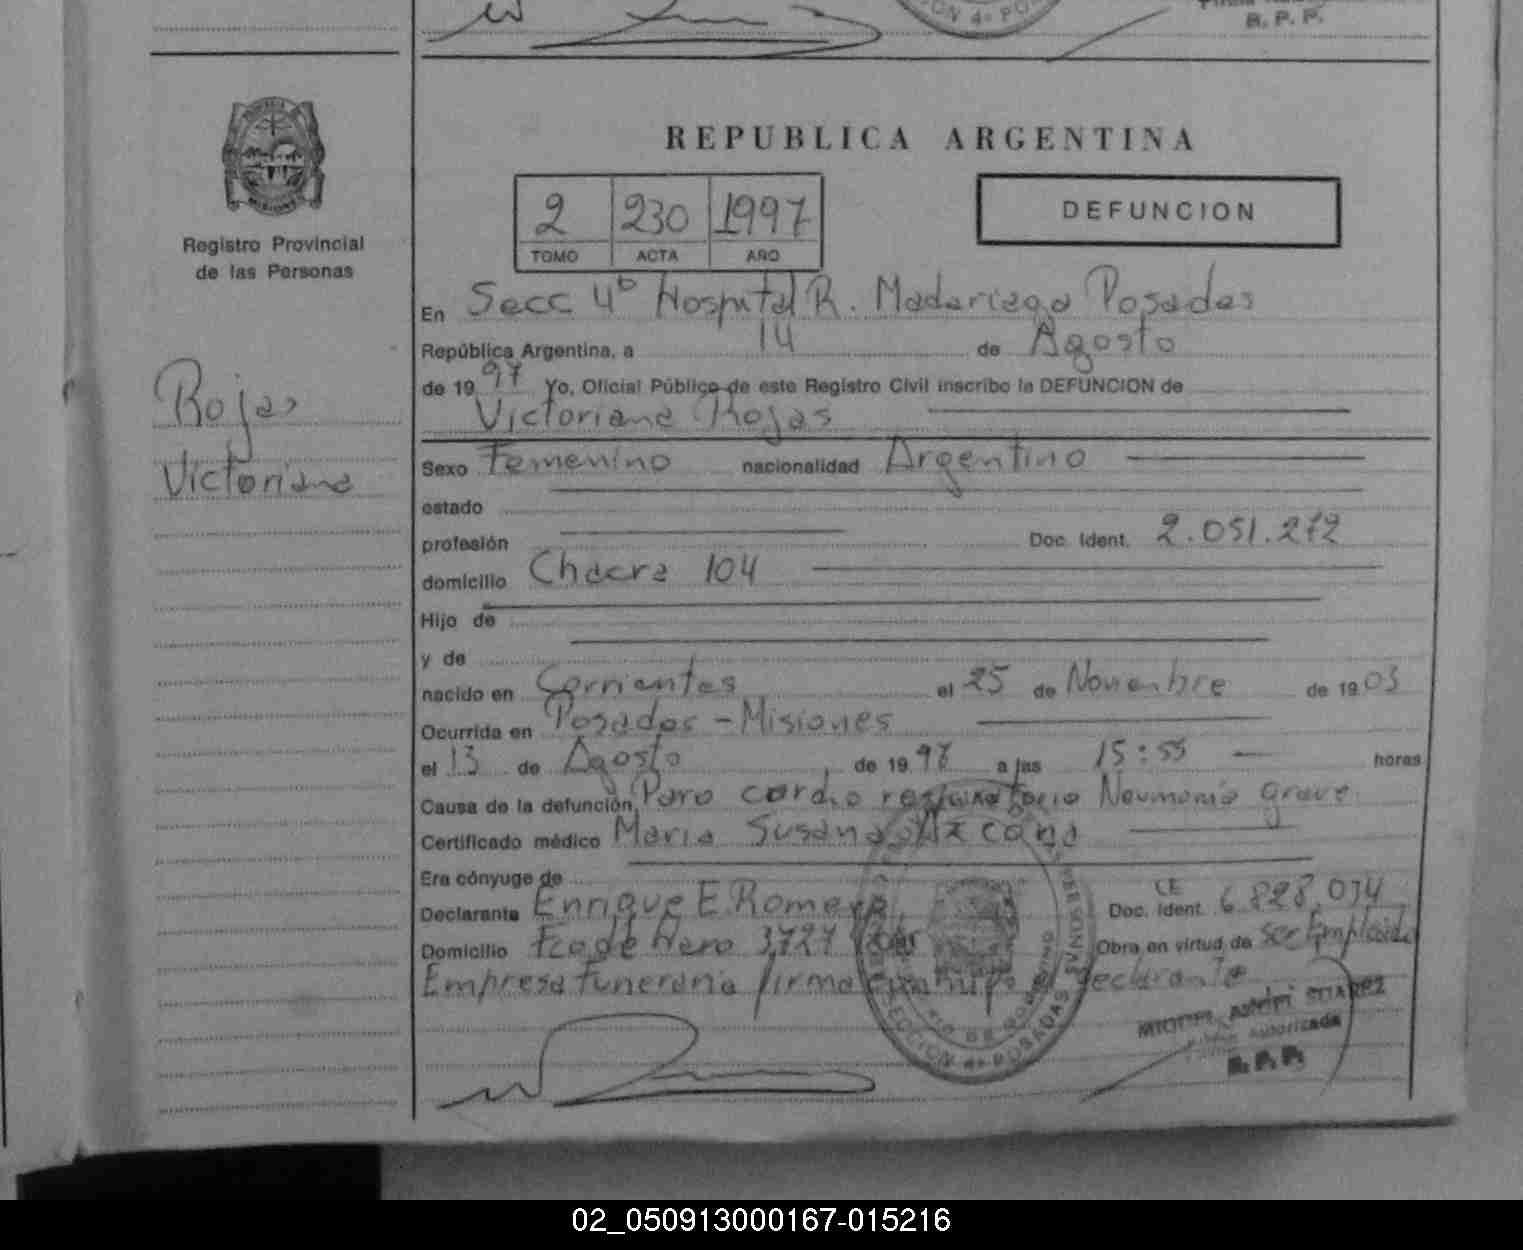 CION 4ª POS
R. P. P.
REPUBLICA ARGENTINA
2 230 1997
TOMO ACTA AÑO
DEFUNCION
Registro Provincial
de las Personas
Rojas
Victoriana
En Secc 4ª Hospital R. Madariaga Posadas
República Argentina, a 14 de Agosto
de 19 97 Yo, Oficial Público de este Registro Civil inscribo la DEFUNCION de
Victoriana Rojas
Sexo Femenino nacionalidad Argentino
estado
profesión Doc. Ident. 2.051.272
domicilio Chacra 104
Hijo de
y de
nacido en Corrientes el 25 de Noviembre de 19 03
Ocurrida en Posadas - Misiones
el 13 de Agosto de 19 97 a las 15:55 horas
Causa de la defunción Paro cardio respiratorio Neumonia grave
Certificado médico Maria Susana
Era cónyuge de
Declarante Enrique E. Romero CE Doc. Ident. 6.828.034
Domicilio Fco de Haro 3727 Obra en virtud de ser Empleado
Empresa funeraria firma declarante
SECCION 4ª POSADAS
autorizada
R. P. P.
02_050913000167-015216